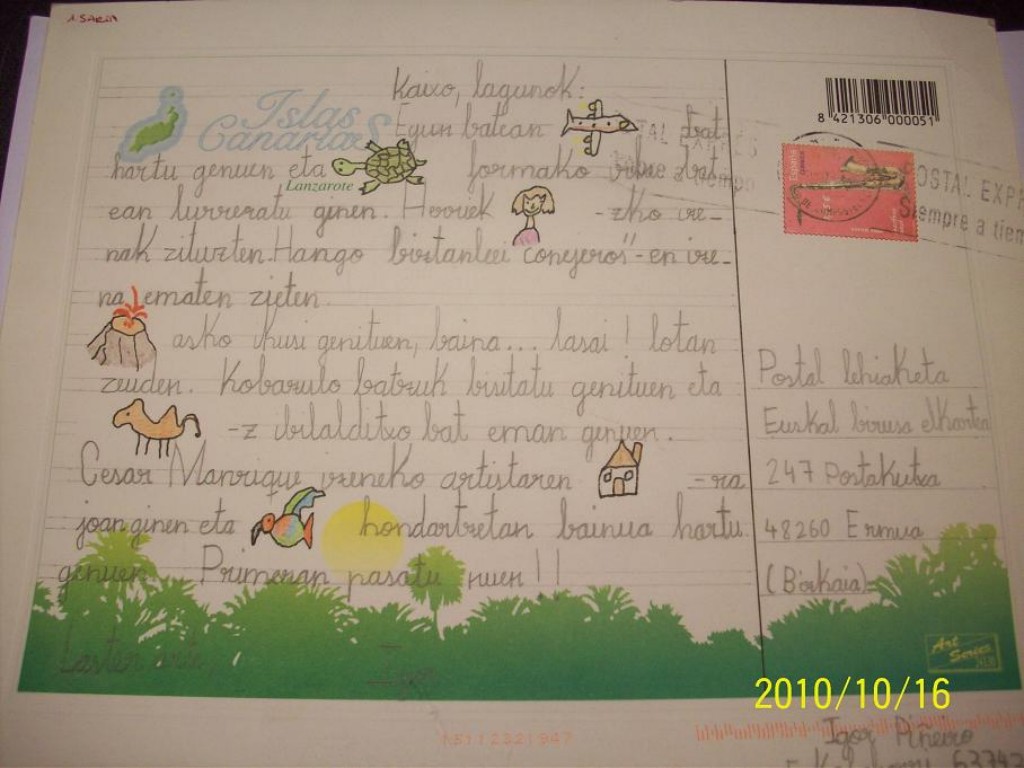 1. SARIA
Islas
Canarias
Lanzarote
Kaixo, lagunok:
Egun batean bat
hartu genuen eta formako bat
ean lurreratu ginen. Horiek -zko ize-
nak zituzten. Hango biztanleei "conejeros"-en ize-
na ematen zieten.
asko ikusi genituen, baina... lasai! lotan
zeuden. Kobazulo batzuk bisitatu genituen eta
-z ibilalditxo bat eman genuen.
Cesar Manrique izeneko artistaren -ra
joan ginen eta hondartzetan bainua hartu
genuen. Primeran pasatu nuen!!
Laster arte,
8 421306 000051
POSTAL EXPRES
Siempre a tiempo
Postal lehiaketa
Euskal birusa elkartea
247 Postakutxa
48260 Ermua
(Bizkaia)
Art
Series
2010/10/16
Igor Piñeiro